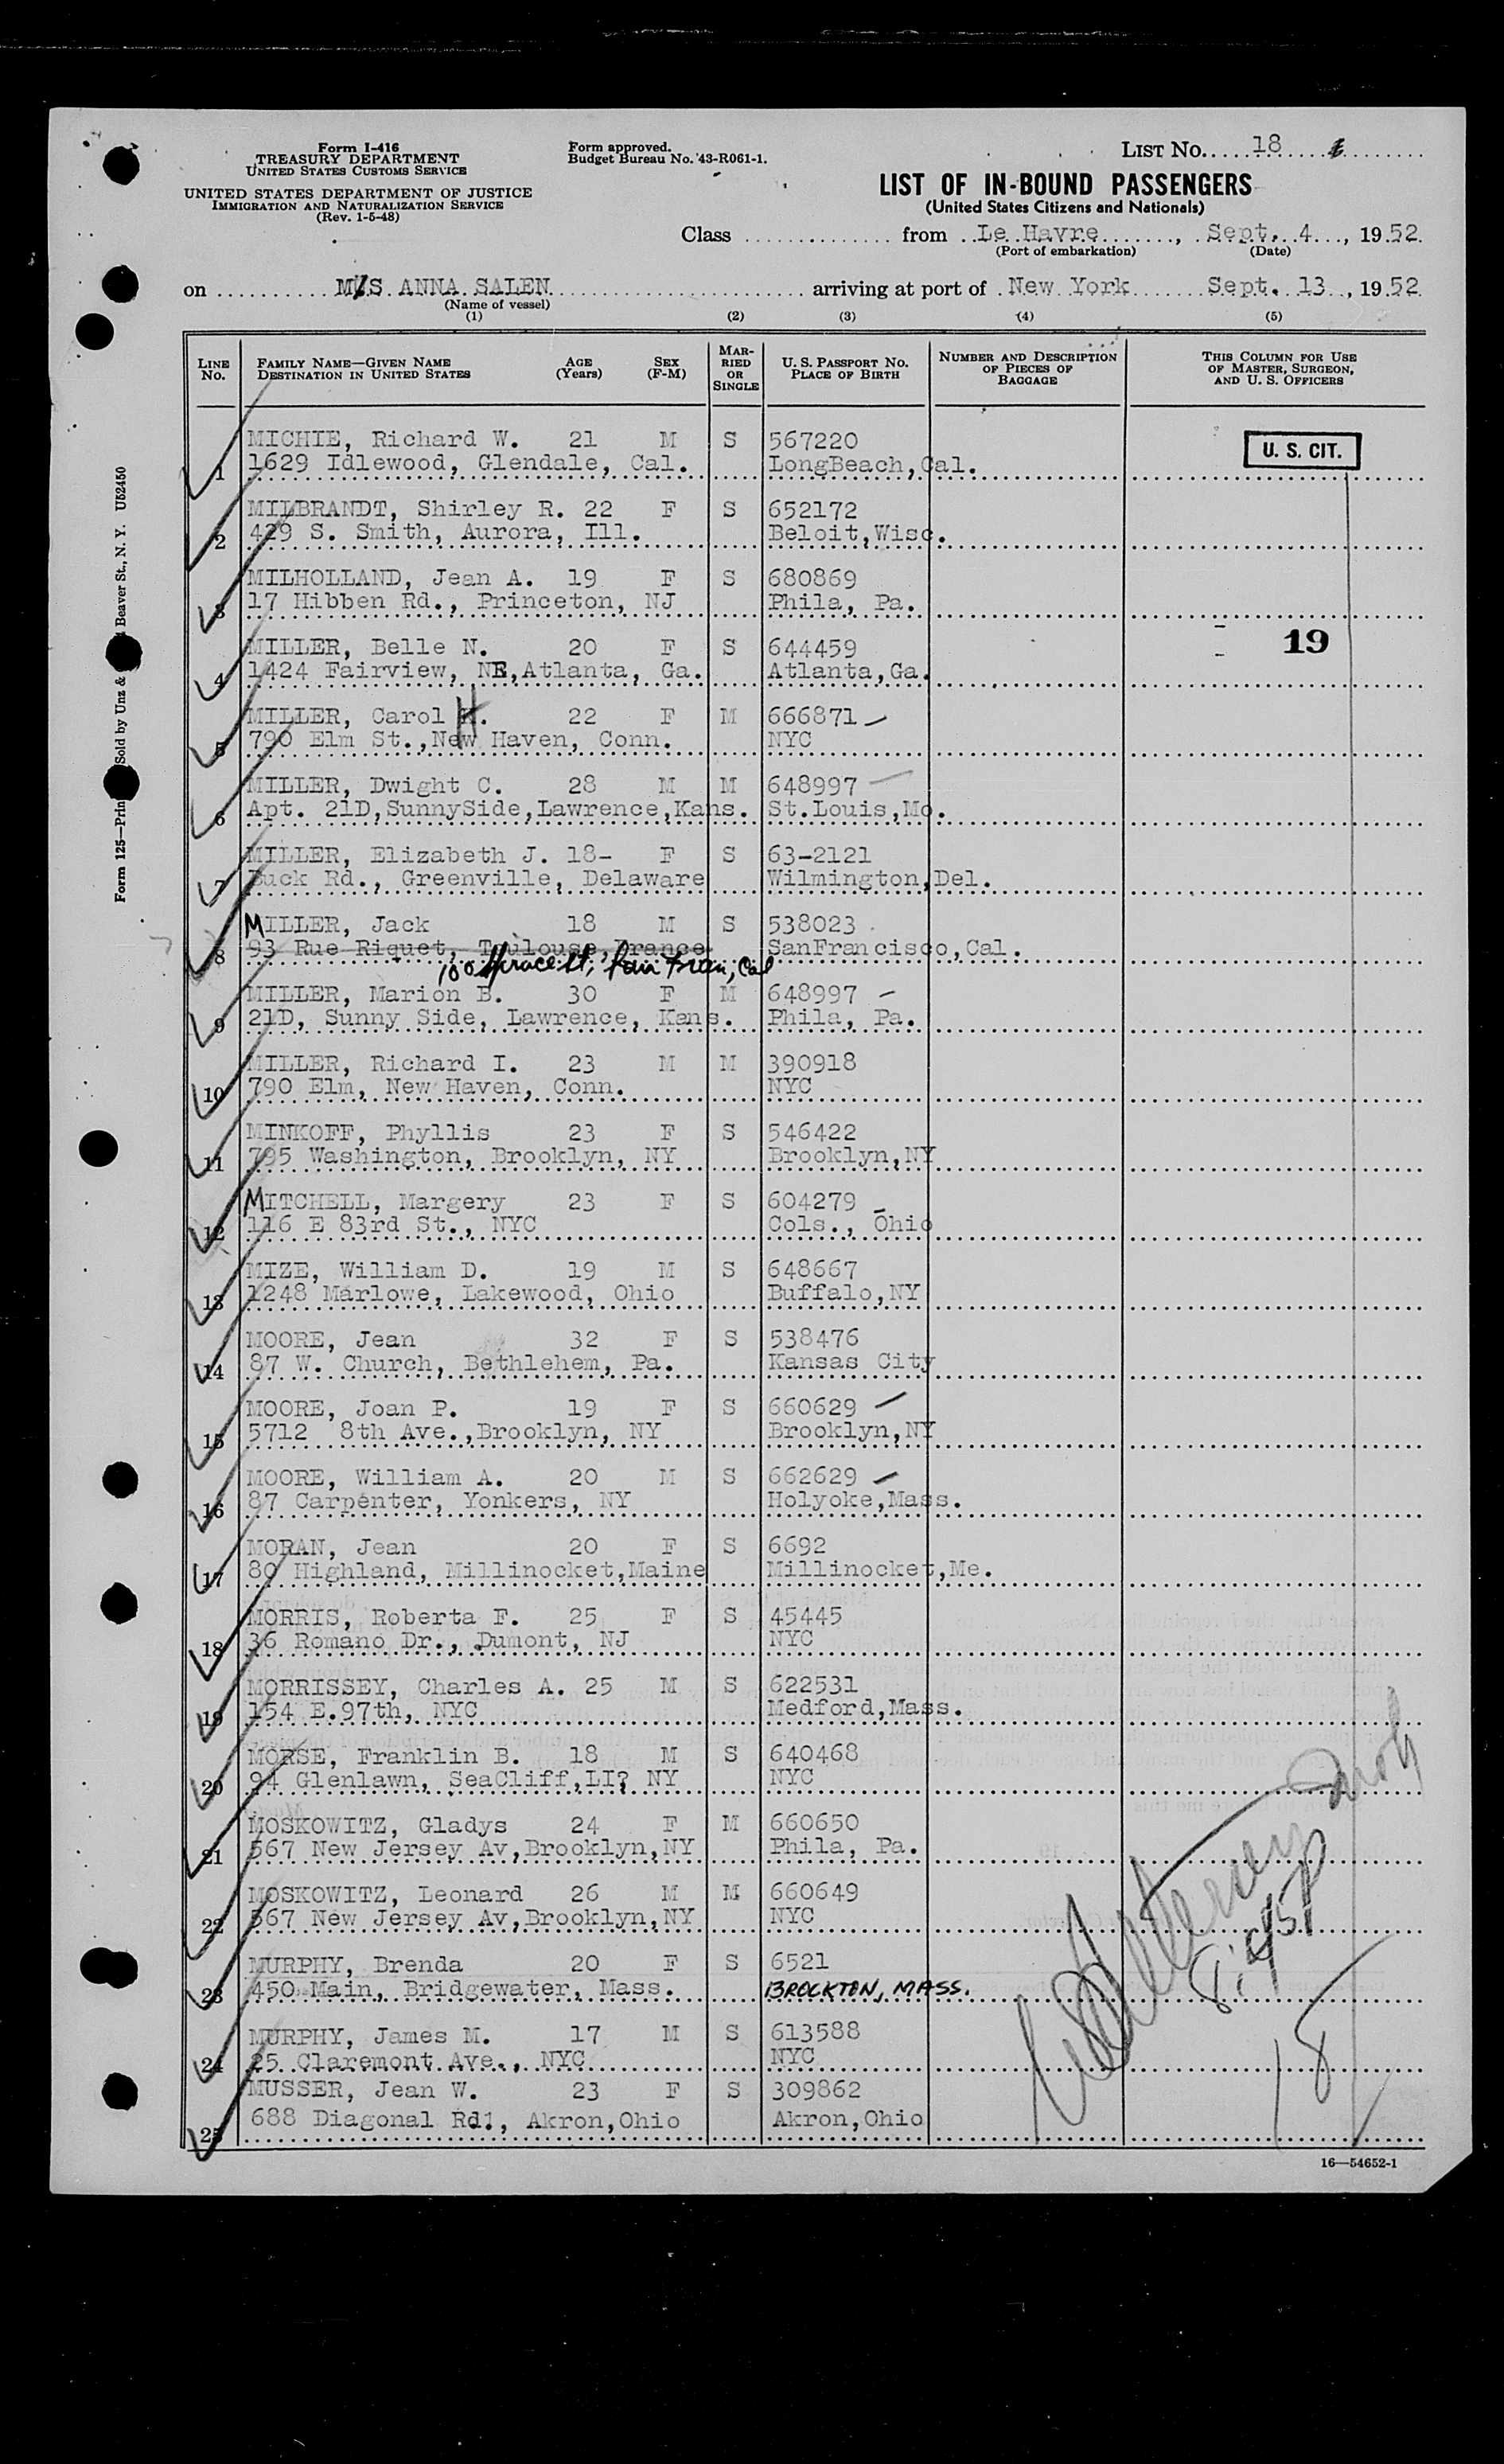 Form I-416
TREASURY DEPARTMENT
UNITED STATES CUSTOMS SERVICE
UNITED STATES DEPARTMENT OF JUSTICE
IMMIGRATION AND NATURALIZATION SERVICE
(Rev. 1-5-48)
Form approved.
Budget Bureau No. 43-R061-1.
LIST No. 18
LIST OF IN-BOUND PASSENGERS
(United States Citizens and Nationals)
Class from Le Havre, Sept. 4, 1952
(Port of embarkation) (Date)
on M/S ANNA SALEN arriving at port of New York Sept. 13, 1952
(Name of vessel)
(1) (2) (3) (4) (5)
LINE No. FAMILY NAME—GIVEN NAME DESTINATION IN UNITED STATES AGE (Years) SEX (F-M) MARRIED OR SINGLE U. S. PASSPORT No. PLACE OF BIRTH NUMBER AND DESCRIPTION OF PIECES OF BAGGAGE THIS COLUMN FOR USE OF MASTER, SURGEON, AND U. S. OFFICERS
MICHIE, Richard W. 21 M S 567220 U. S. CIT.
1 1629 Idlewood, Glendale, Cal. LongBeach,Cal.
MILBRANDT, Shirley R. 22 F S 652172
2 429 S. Smith, Aurora, Ill. Beloit,Wisc.
MILHOLLAND, Jean A. 19 F S 680869
3 17 Hibben Rd., Princeton, NJ Phila, Pa.
MILLER, Belle N. 20 F S 644459 19
4 1424 Fairview, NE,Atlanta, Ga. Atlanta,Ga.
MILLER, Carol H. 22 F M 666871
5 790 Elm St.,New Haven, Conn. NYC
MILLER, Dwight C. 28 M M 648997
6 Apt. 21D,SunnySide,Lawrence,Kans. St.Louis,Mo.
MILLER, Elizabeth J. 18- F S 63-2121
7 Buck Rd., Greenville, Delaware Wilmington,Del.
MILLER, Jack 18 M S 538023
8 93 Rue Riquet, Toulouse,France SanFrancisco,Cal.
100 Spruce St, San Fran, Cal
MILLER, Marion B. 30 F M 648997
9 21D, Sunny Side, Lawrence, Kans. Phila, Pa.
MILLER, Richard I. 23 M M 390918
10 790 Elm, New Haven, Conn. NYC
MINKOFF, Phyllis 23 F S 546422
11 795 Washington, Brooklyn, NY Brooklyn,NY
MITCHELL, Margery 23 F S 604279
12 116 E 83rd St., NYC Cols., Ohio
MIZE, William D. 19 M S 648667
13 1248 Marlowe, Lakewood, Ohio Buffalo,NY
MOORE, Jean 32 F S 538476
14 87 W. Church, Bethlehem, Pa. Kansas City
MOORE, Joan P. 19 F S 660629
15 5712 8th Ave.,Brooklyn, NY Brooklyn,NY
MOORE, William A. 20 M S 662629
16 87 Carpenter, Yonkers, NY Holyoke,Mass.
MORAN, Jean 20 F S 6692
17 80 Highland, Millinocket,Maine Millinocket,Me.
MORRIS, Roberta F. 25 F S 45445
18 36 Romano Dr., Dumont, NJ NYC
MORRISSEY, Charles A. 25 M S 622531
19 154 E.97th, NYC Medford,Mass.
MORSE, Franklin B. 18 M S 640468
20 94 Glenlawn, SeaCliff,LI? NY NYC
MOSKOWITZ, Gladys 24 F M 660650
21 567 New Jersey Av,Brooklyn,NY Phila, Pa.
MOSKOWITZ, Leonard 26 M M 660649
22 567 New Jersey Av,Brooklyn,NY NYC
MURPHY, Brenda 20 F S 6521
23 450 Main, Bridgewater, Mass. BROCKTON, MASS.
MURPHY, James M. 17 M S 613588
24 25 Claremont Ave., NYC NYC
MUSSER, Jean W. 23 F S 309862
25 688 Diagonal Rd1, Akron,Ohio Akron,Ohio
16—54652-1
Beaver St., N. Y. U52450
Form 125—Prin Sold by Unz &